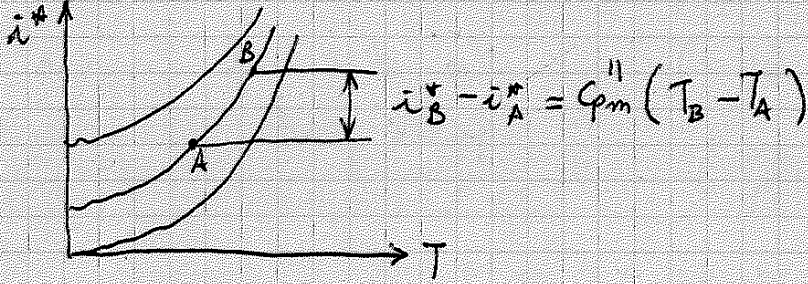 i*
B
A
T
i*B - i*A = Cpm'' (TB - TA)